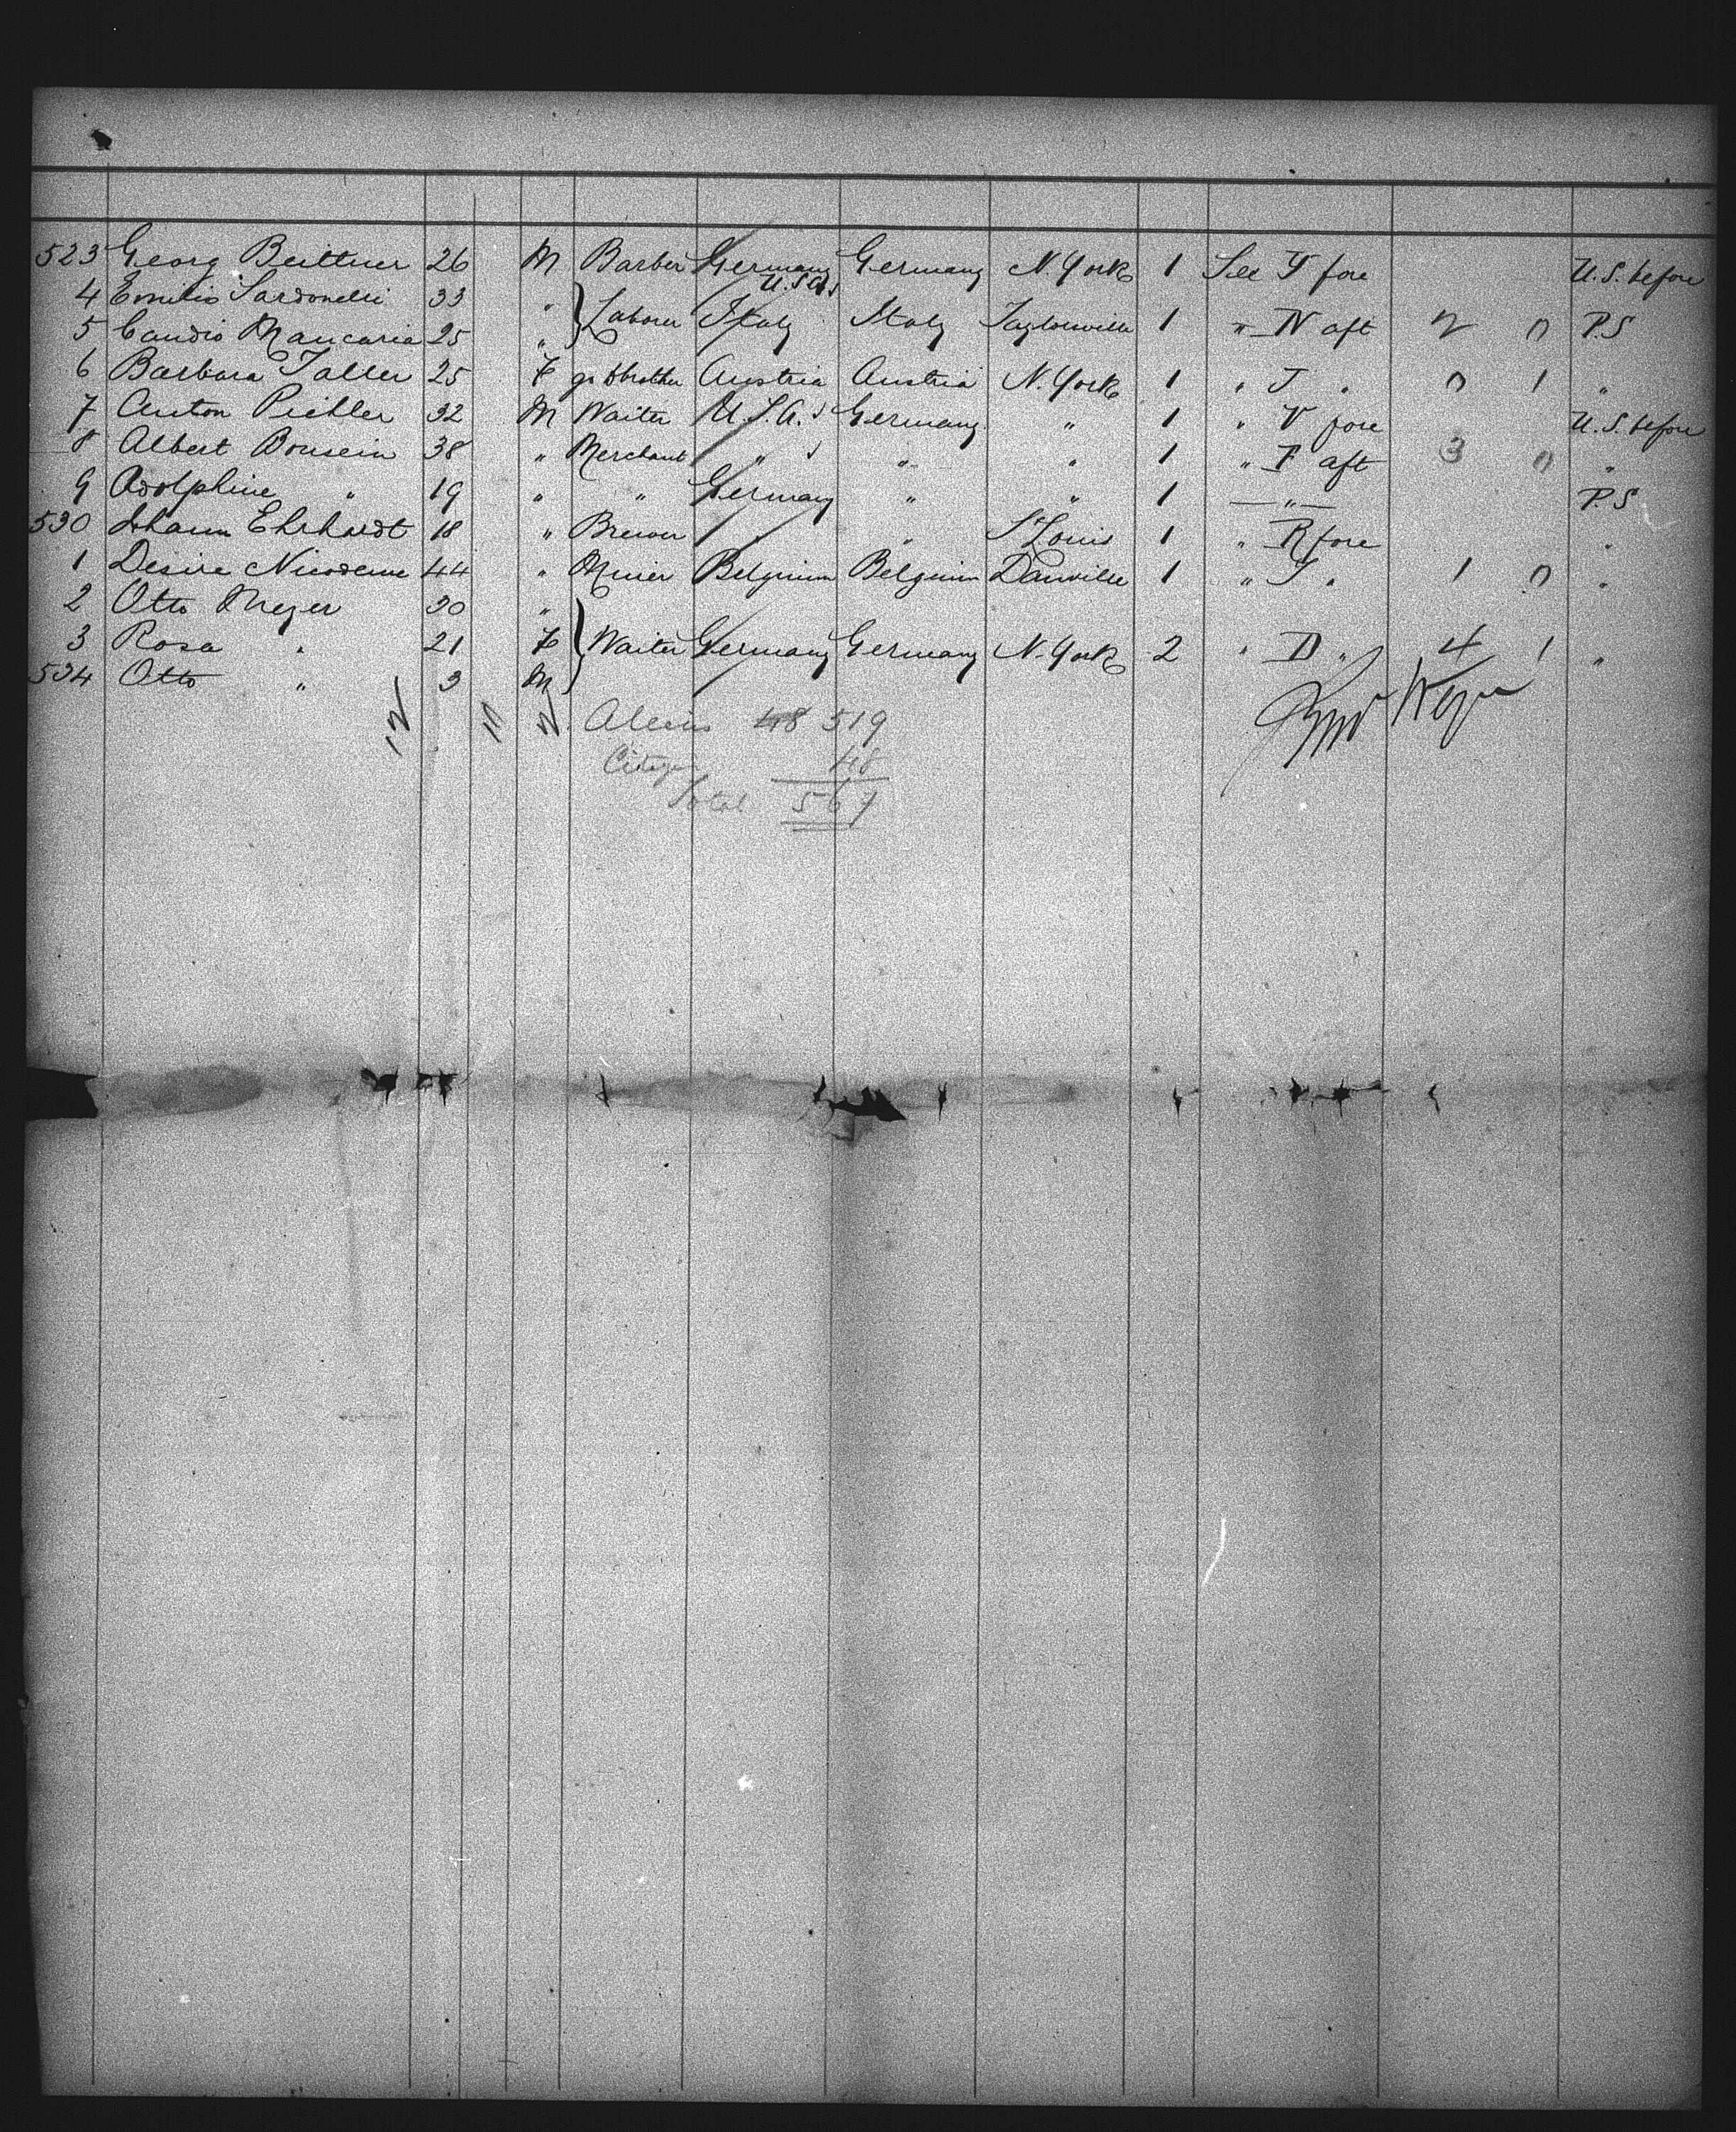 523 Georg Beittner 26 M Barber Germany Germany N. York 1 See T fore U.S. before
4 Emilio Sardonelli 33 " U.S.A.
5 Candio Mancaria 25 " Laborer Italy Italy Taylorville 1 " N aft 2 0 P.S
6 Barbara Taller 25 F gs t brother Austria Austria N. York 1 " T " 0 1 "
7 Anton Pichler 32 M Waiter U.S.A. Germany " 1 " V fore U.S. before
8 Albert Bonsein 38 " Merchant " " " 1 " F aft 3 0 "
9 Adolphine " 19 " " Germany " " 1 " P.S
530 Johann Ehrhardt 18 " Brewer " " St Louis 1 " R fore "
1 Desire Nicodeme 44 " Miner Belgium Belgium Danville 1 " T " 1 0 "
2 Otto Meyer 30 "
3 Rosa " 21 F Waiter Germany Germany N. York 2 " D " 4 1 "
534 Otto " 3 M
Aliens 48 519
Citizen 48
Total 567